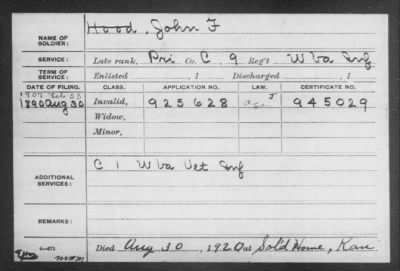 NAME OF SOLDIER: Hood, John F
SERVICE: Late rank, Pri Co. C, 9 Reg't W Va Inf
TERM OF SERVICE: Enlisted , 1 Discharged , 1
DATE OF FILING. CLASS. APPLICATION NO. LAW. CERTIFICATE NO.
1890 Aug 30 Invalid, 925628 945029
Widow,
Minor,
ADDITIONAL SERVICES: C 1 W Va Vet Inf
REMARKS:
Died Aug 30, 1920 at Sold Home, Kan